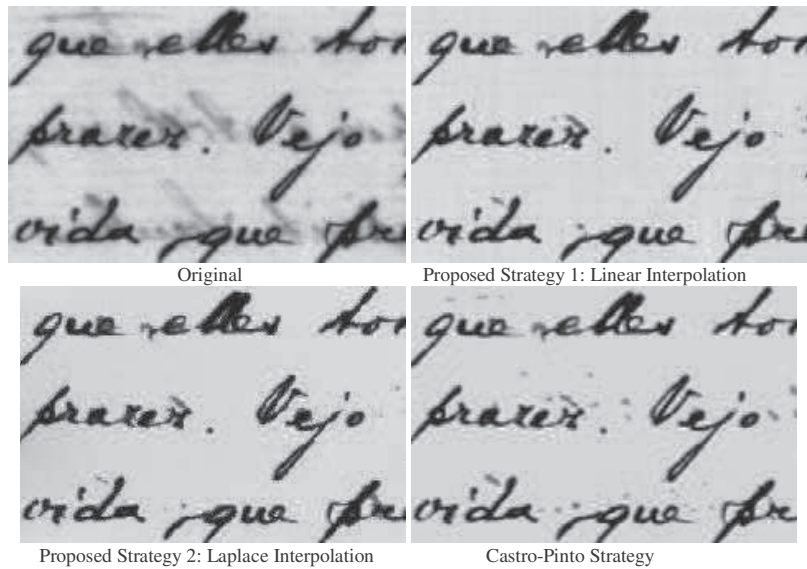 que elles tor
prazer. Vejo
vida, que pre
Original
que elles tor
prazer. Vejo
vida, que pre
Proposed Strategy 1: Linear Interpolation
que elles tor
prazer. Vejo
vida, que pre
Proposed Strategy 2: Laplace Interpolation
que elles tor
prazer. Vejo
vida, que pre
Castro-Pinto Strategy